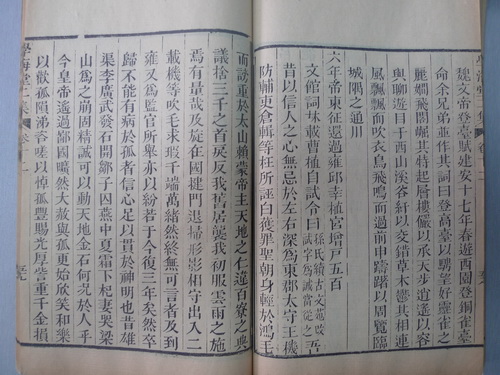 魏文帝登臺賦建安十七年春遊西園登銅雀臺
命余兄弟並作其詞曰登高臺以騁望好靈雀之
麗嫻飛閣崛其特起層樓儼以承天步逍遙以容
與聊遊目于西山溪谷紆以交錯草木鬱其相連
風飄飄而吹衣鳥飛鳴而過前申躊躇以周覽臨
城隅之通川
六年帝東征還過雍邱幸植宮增戶五百
文館詞林載曹植自試令曰孫氏續古文苑疑試字爲誡當從之吾
昔以信人之心無忌於左右深爲東郡太守王機
防輔吏倉輯等枉所誣白獲罪聖朝身輕於鴻毛
而謗重於太山賴蒙帝主天地之仁違百寮之典
議捨三千之首戾反我舊居襲我初服雲雨之施
焉有量哉反旋在國揵門退掃形影相守出入二
載機等吹毛求瑕千端萬緒然終無可言者及到
雍又爲監官所舉亦以紛若于今復三年矣然卒
歸不能有病於孤者信心足以貫於神明也昔雄
渠李廣武發石開鄒子囚燕中夏霜下杞妻哭梁
山爲之崩固精誠可以動天地金石何況於人乎
今皇帝遙過鄙國曠然大赦與孤更始欣笑和樂
以歡孤隕涕咨嗟以悼孤豐賜光厚訾重千金損
學海堂二集